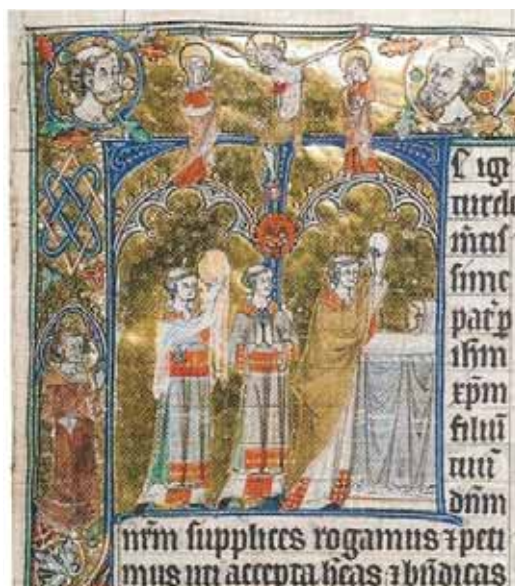 E igi
turcle
m̄tiſ
ſime
patr̄ p
ihm
xp̄m
filiū
tuū
dn̄m
nr̄m ſupplices rogamus ⁊ peti
mus uti accepta h̄eas ⁊ bn̄dicas